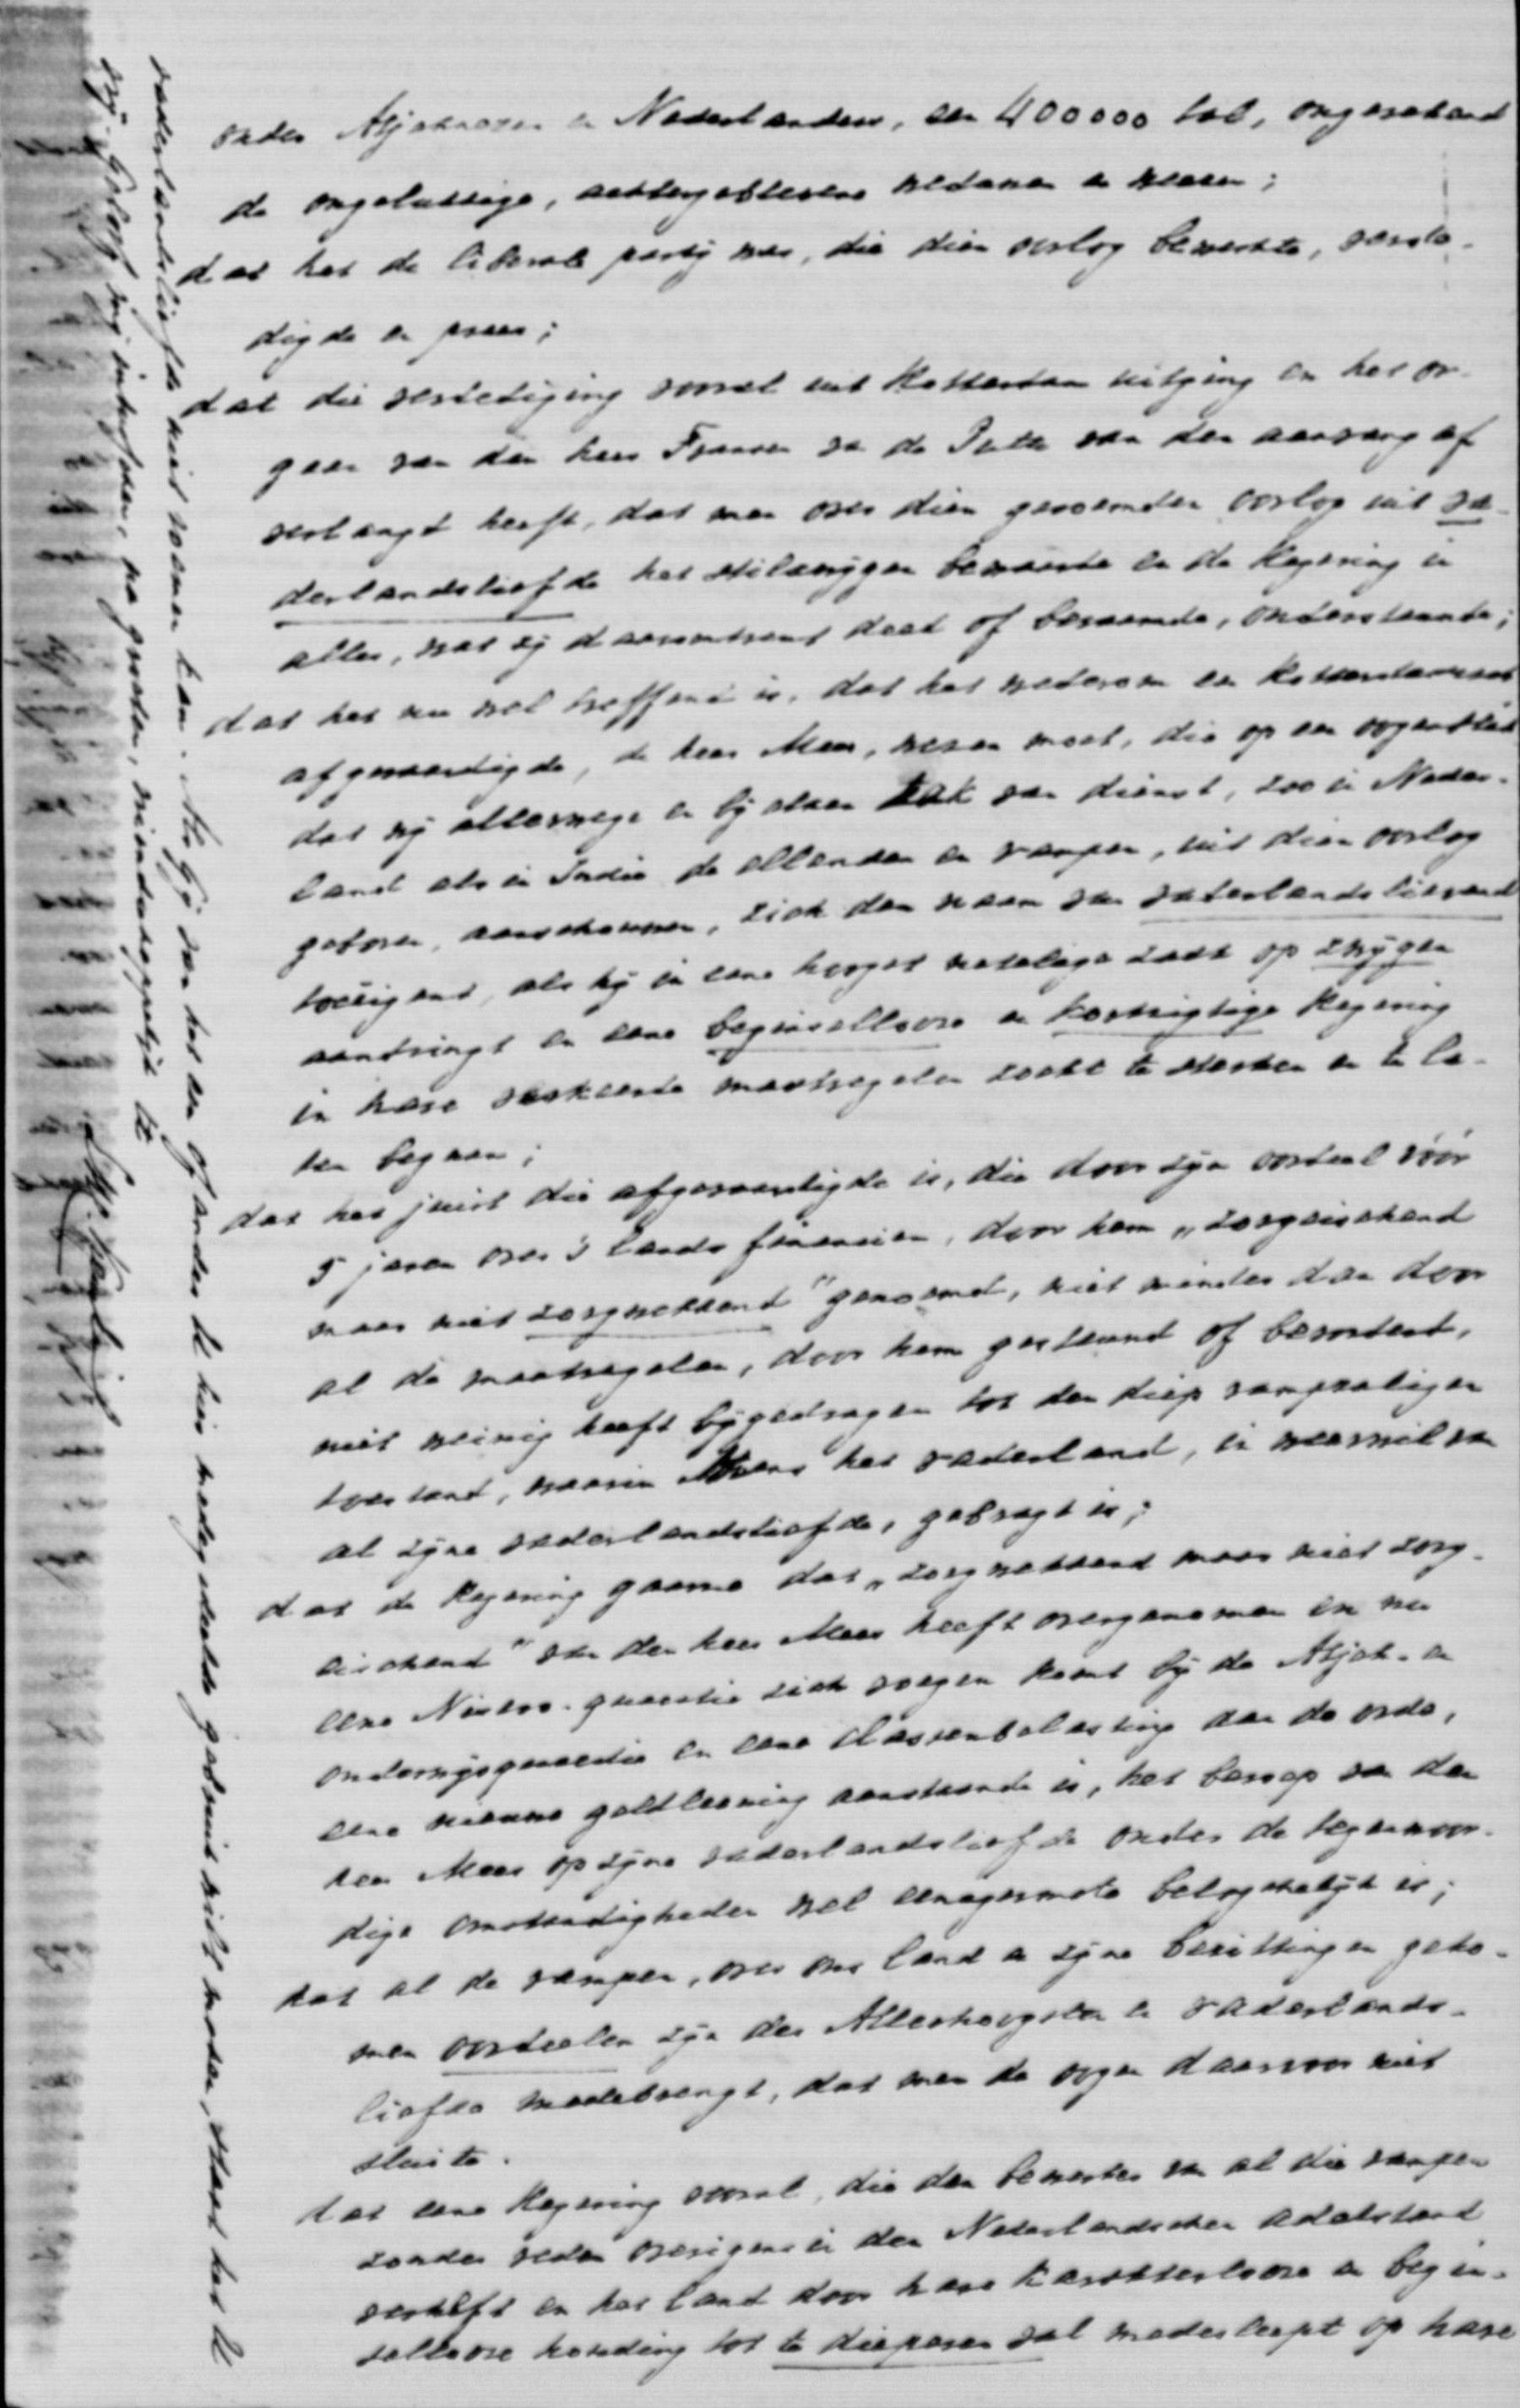 onder Atjehneezen en Nederlanders, een 400000 tal, ongerekend
de ongelukkige, achtergeblevene weduwen en weezen;
dat het de liberale partij was, die dien oorlog bewerkte, verde-
digde en prees;
dat die verdediging vooral uit Rotterdam uitging en het or-
gaan van den heer Fransen van de Putte van den aanvang af
verlangd heeft, dat men over dien genoemden oorlog uit va-
derlandsliefde het stilzwijgen bewaarde en de Regering in
alles, wat zij daaromtrent deed of beraamde, ondersteunde;
dat het nu wel treffend is, dat het wederom een Rotterdamsch
afgevaardigde, de heer Mees, wezen moet, die op een oogenblik
dat wij allerwege en bij elken tak van dienst, zoo in Neder-
land als in Indie de ellenden en rampen, uit dien oorlog
geboren, aanschouwen, zich den naam van vaderlandslievend
toeëigent, als hij in eene hoogst netelige zaak op zwijgen
aandringt en eene beginsellooze en kortzigtige Regering
in hare verkeerde maatregelen zoekt te sterken en te la-
ten begaan;
dat het juist die afgevaardigde is, die door zijn oordeel vóór
5 jaren over 's lands financien, door hem „zorgeischend
maar niet zorgwekkend" genoemd, niet minder dan door
al de maatregelen, door hem gesteund of bevorderd,
niet weinig heeft bijgedragen tot den diep rampzaligen
toestand, waarin thans het vaderland, in weerwil van
al zijne vaderlandsliefde, gebragt is;
dat de Regering gaarne dat „zorgwekkend maar niet zorg-
eischend" van den heer Mees heeft overgenomen en nu
eene Nisero-quaestie zich voegen komt bij de Atjeh- en
onderwijsquaestie en eene classenbelasting aan de orde,
eene nieuwe geldleening aanstaande is, het beroep van den
heer Mees op zijne vaderlandsliefde onder de tegenwoor-
dige omstandigheden wel eenigermate belagchelijk is;
dat al de rampen, over ons land en zijne bezittingen geko-
men oordeelen zijn des Allerhoogsten en vaderlands-
liefde medebrengt, dat men de oogen daarvoor niet
sluite.
dat eene Regering vooral, die den bewerker van al die rampen
zonder reden overigens in den Nederlandschen adelstand
verheft en het land door hare karakterlooze en begin-
sellooze houding tot te dieperen val medesleept op hare
vaderlandsliefde niet roemen kan. Als gij van het een of ander te hier medegedeelde gebruik wilt maken, staat het U
vrij. Geloof mij inmiddels, na groeten, vriendschappelijk tt